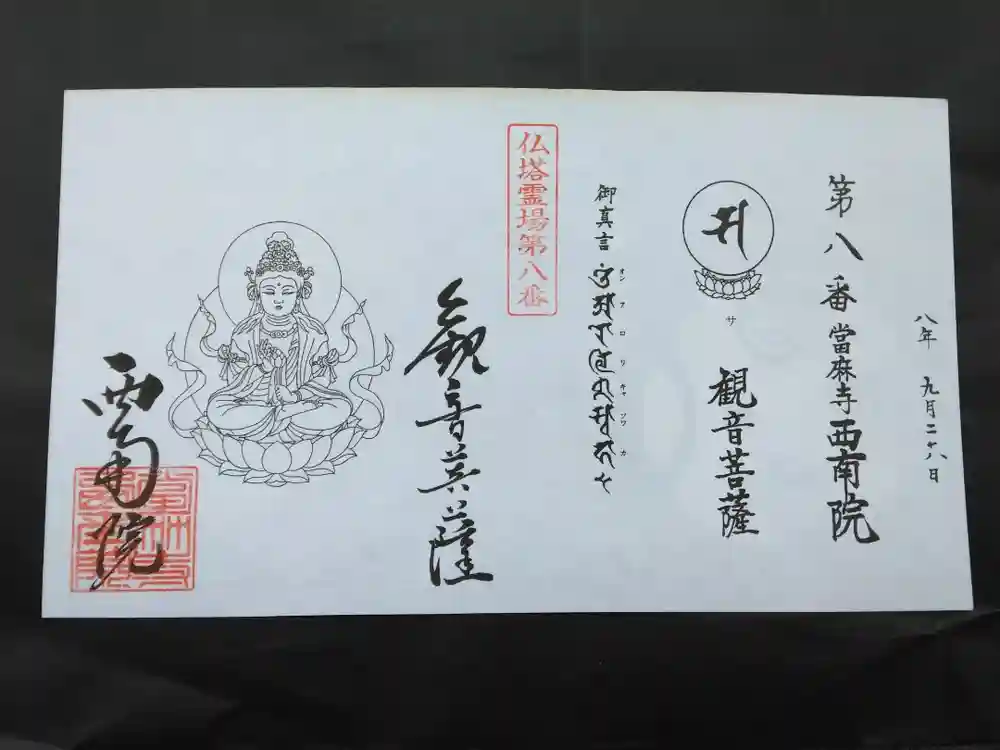 八年 九月二十八日
第八番當麻寺西南院
サ
観音菩薩
御真言
オン アロリキャ ソワカ
仏塔霊場第八番
観音菩薩
西南院